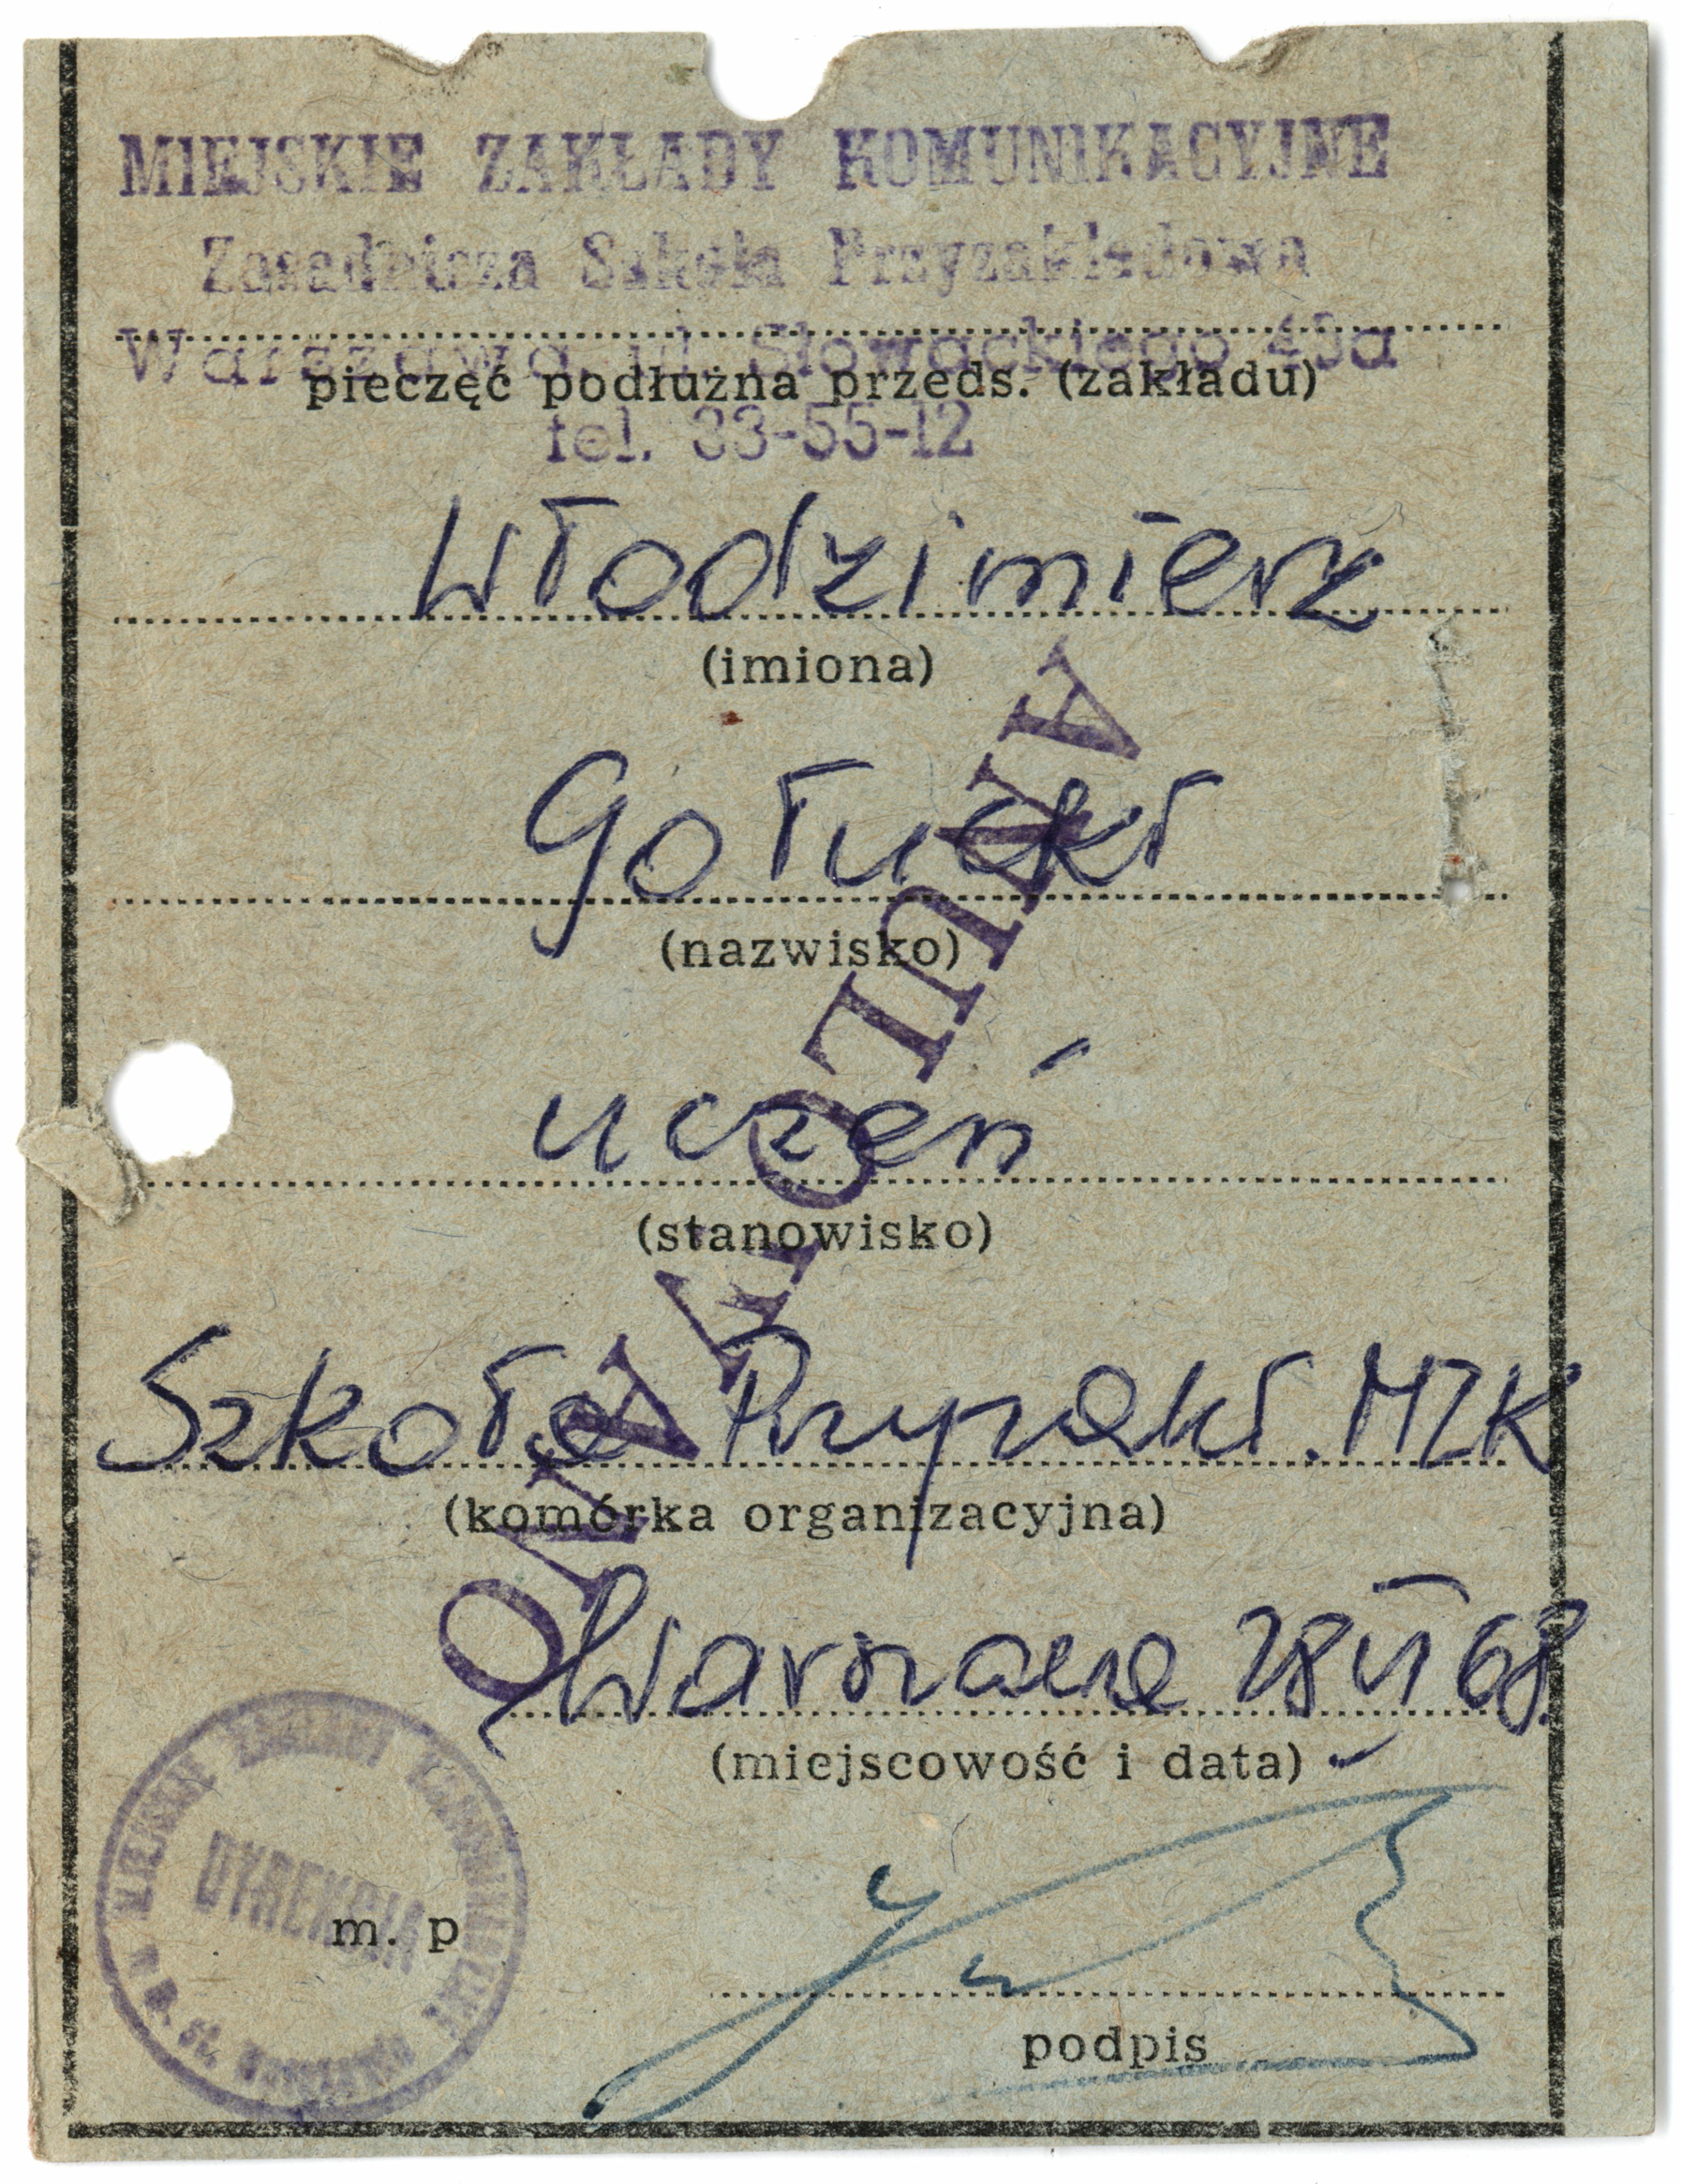 MIEJSKIE ZAKŁADY KOMUNIKACYJNE
Zasadnicza Szkoła Przyzakładowa
Warszawa, ul. Słowackiego 45a
pieczęć podłużna przeds. (zakładu)
tel. 33-55-12
Włodzimierz
(imiona)
Gołucki
(nazwisko)
uczeń
(stanowisko)
Szkoła Przyzakł. MZK
(komórka organizacyjna)
Warszawa 28 VI 68.
(miejscowość i data)
ANULOWANO
MIEJSKIE ZAKŁADY KOMUNIKACYJNE
DYREKCJA
m. p
podpis